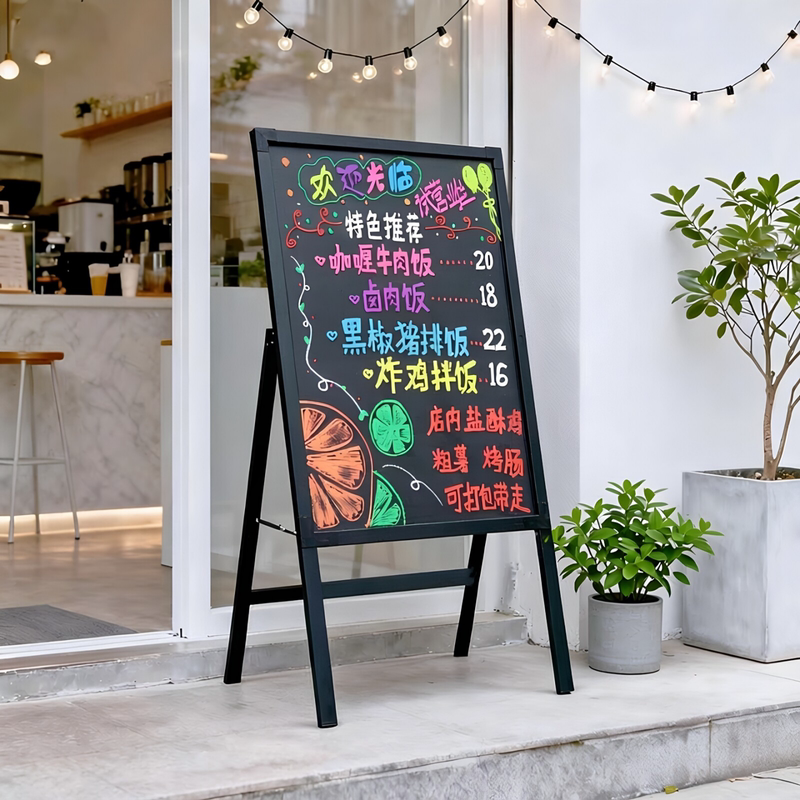 欢迎光临
试营业
特色推荐
咖喱牛肉饭 ...... 20
卤肉饭 ........ 18
黑椒猪排饭 ... 22
炸鸡拌饭 .. 16
店内盐酥鸡
粗薯 烤肠
可打包带走